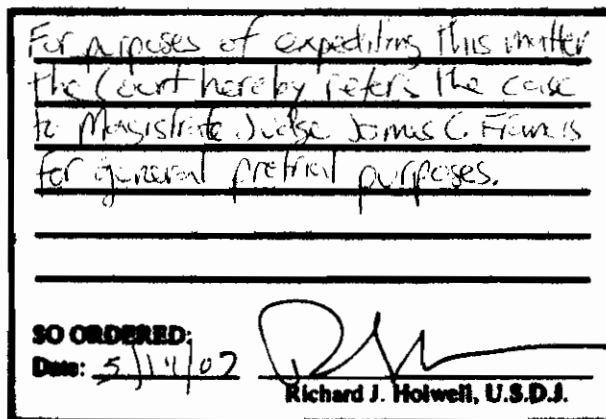 For purposes of expediting this matter
the Court hereby refers the case
to Magistrate Judge James C. Francis
for general pretrial purposes.
SO ORDERED:
Date:
Richard J. Holwell, U.S.D.J.